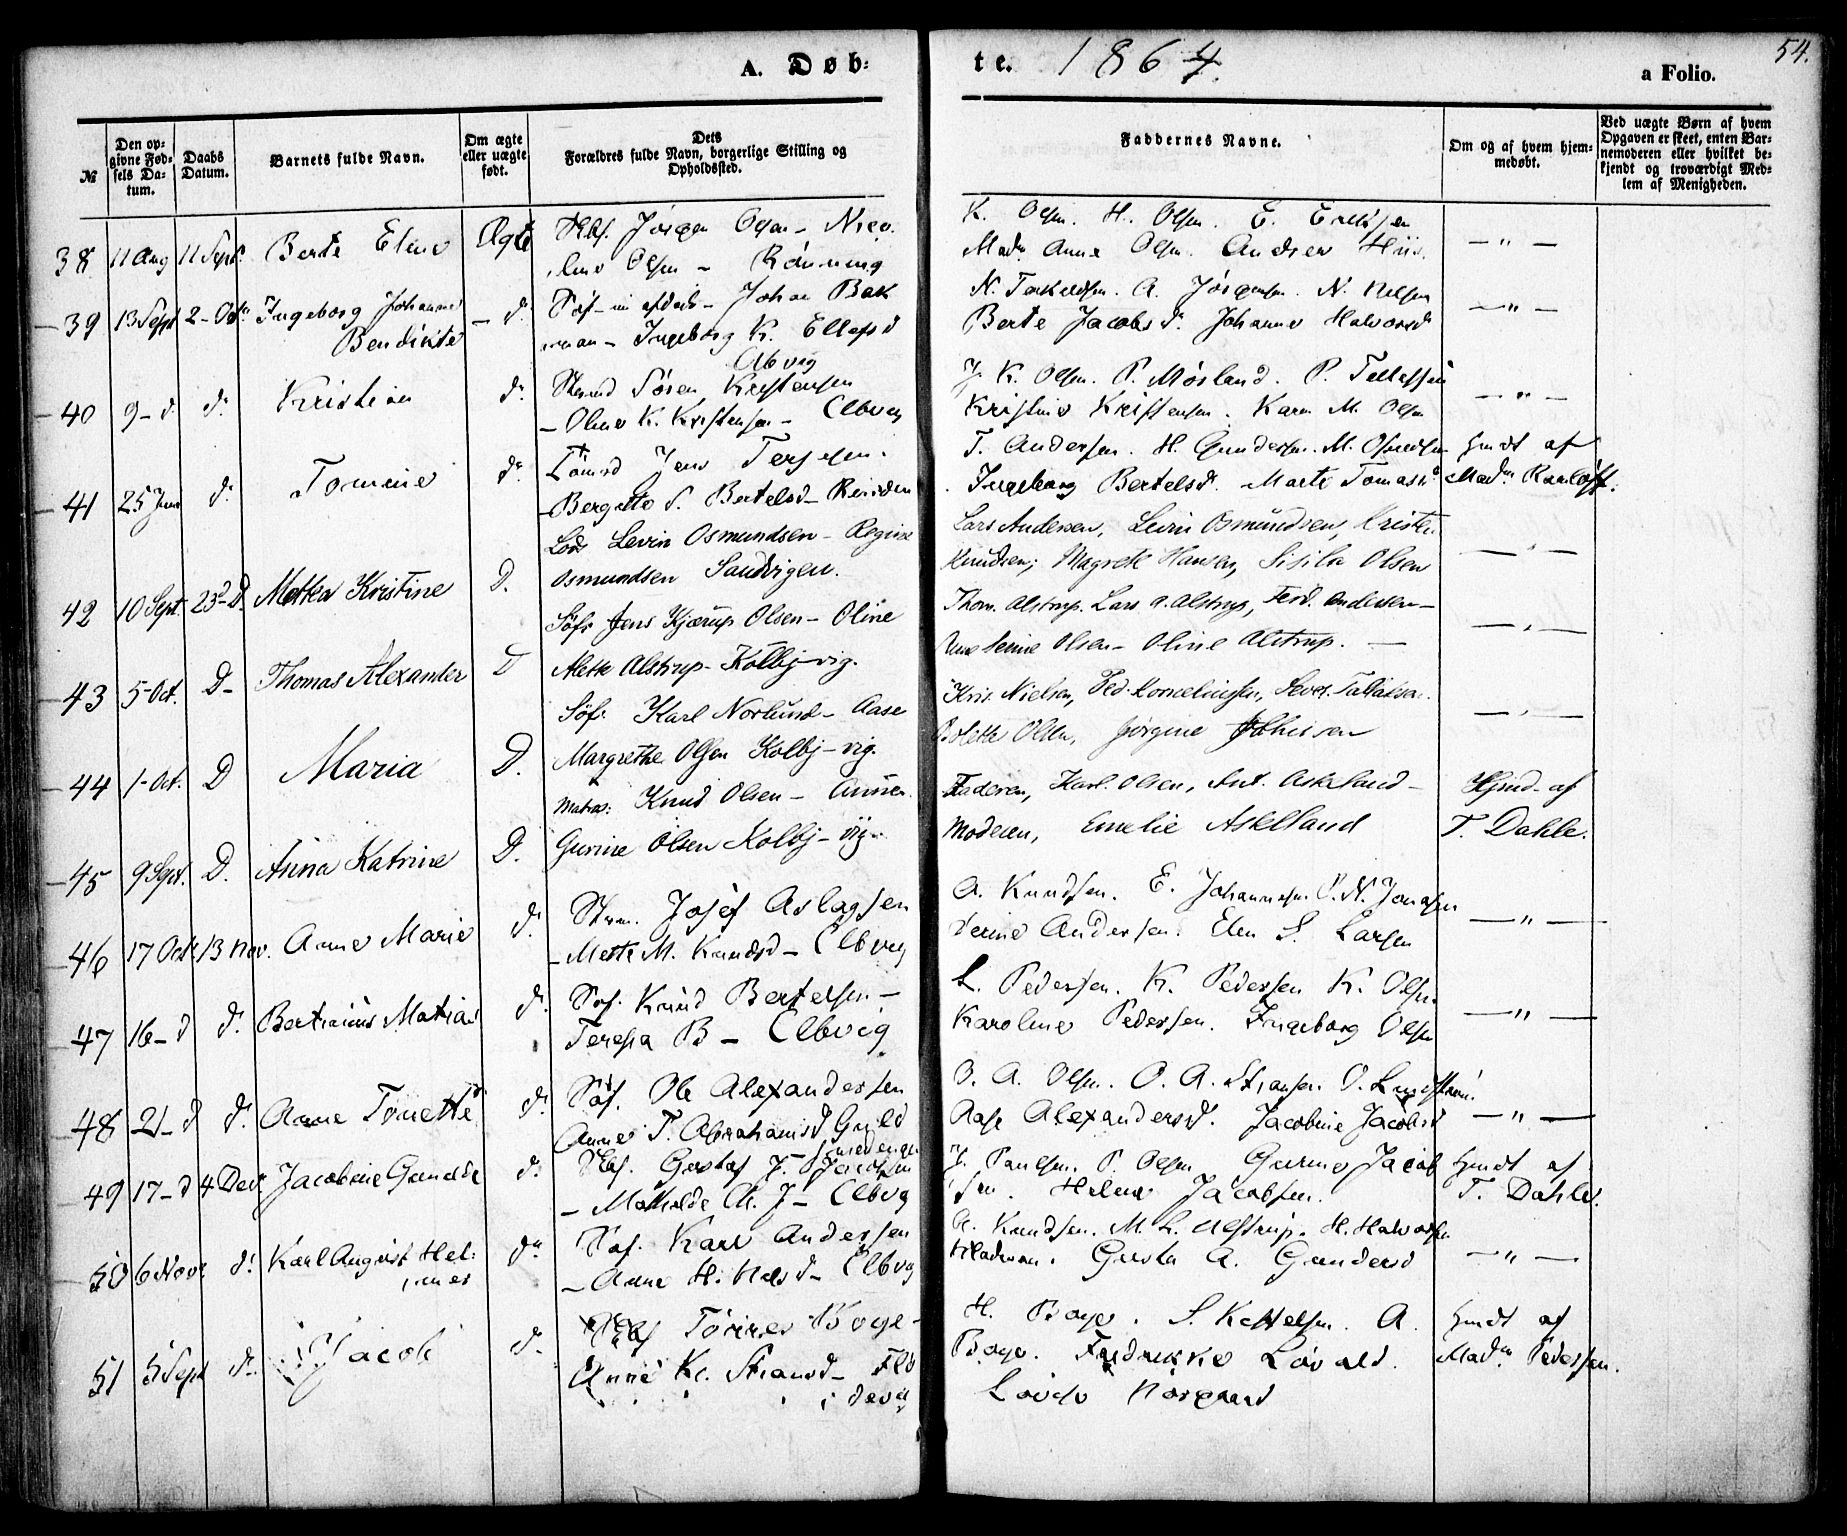 A. Døb=
te. 1864.
a Folio.
54.
№
Den op-
givne Fød-
sels Da-
tum.
Daabs
Datum.
Barnets fulde Navn.
Om ægte
eller uægte
født.
Dets
Forældres fulde Navn, borgerlige Stilling og
Opholdssted.
Faddernes Navne.
Om og af hvem hjem-
medøbt.
Ved uægte Børn af hvem
Opgaven er skeet, enten Bar-
nemoderen eller hvilket be-
kjendt og troværdigt Med-
lem af Menigheden.
38 11 Aug 11 Sept. Berte Eline Ægte
Jørgen Olsen
Olsen - Rønning
K. Olsen. H. Olsen. E. Eriksen
Mad. Anne Olsen. — " —
39 13 Sept 2-Oct Ingeborg Johanne - d.
Bendikte
Johan Bak
man - Ingeborg K. Ellefsd
A. Jørgensen. N. Nelsen
Berte Jacobsd. Johanne Halvorsd — " —
40 9- d. d. Kristian d.
Søren Kristensen
- Oline K. Kristensen - Elbvig
J. K. Olsen. P. Møsland. P. Tellefsen
Kristine Kristensen. Karn M. Olsen — " —
41 25 Juni d. Tomine d.
Jens Terjesen.
- Bertelsd -
T. Andersen. H. Gundersen. M. Osmundsen
Ingeborg Bertelsd. Marte Tomasd
Hmdt af
Mad.
42 10 Sept. 23-D. Metta Kristine D.
Lods Levin Osmundsen - Regine
Osmundsen Sandvigen.
Lars Andersen, Levin Osmundsen, Kristen
Knudsen; Magrete Hansen, Sisilia Olsen — " —
43 5-Oct. D- Thomas Alexander D
Søfr Jens Kjærup Olsen - Oline
Mette Alstrup - Kolbj-vig.
Thom. Alstrup. Lars A. Alstrup, Ferd. Andersen -
Olsen - Oline Alstrup. — " —
44 1-Oct. D Maria D.
Søfr. Karl Norlund - Aase
Margrethe Olsen Kolbj-vig.
Kris. Nielsen, Ped. Korneliusen,
Olsen, Jørgine — " —
45 9 Sept. D. Anna Katrine D.
Matros: Knud Olsen -
Gurine Olsen Kolbj-vig.
Faderen, Karl Olsen, Ant. Askeland -
Moderen, Emelie Askelland
Hjmd. af
T. Dahle.
46 17 Oct 13 Nov. Anne Marie d.
Strm. Josef Aslagsen
- Mette M. Knudsd - Elbvig
A. Knudsen. E. Johannesen. N. Jonassen
Serine Andersen. Elen S. Larsen — " —
47 16- d d. Bertinius Matias d.
Søf. Knud Bertelsen -
Teresia B - Elbvig
L. Pedersen. K. Pedersen K. Olsen
Karoline Pedersen. Ingeborg Olsen — " —
48 21- d d. Anne Tonette d.
Søf. Ole Alexandersen
Anne T. Abrahamsd
O. A. Olsen. O. A. Stiansen.
Aase Alexandersd. Jacobine Jacobsd — " —
49 17- d 4 Dec Jacobine Gunelde d.
Gustaf J. Jacobsen
- Mathilde Ch. J - Elbvig
J. Paulsen. P. Olsen Gurine Jacob
sen. Helene Jacobsen.
Hmdt af
T. Dahle.
50 6 Nov d. Karl August Hel- d.
mer
Søf. Karl Andersen
- Anne H. Nelsd - Elbvig
A. Knudsen. M. L. Ulstrup. H. Halvorsen
Gusta A. Gundersd — " —
51 5 Sept d. Jacob d.
Tørres Boye -
Anne K. Strand - Flö
devig
H. Boye. S. Kettelsen. A.
Boye. Fredrikke Løvold.
Lovise Norgaard
Hmdt af
Mad. Pedersen.